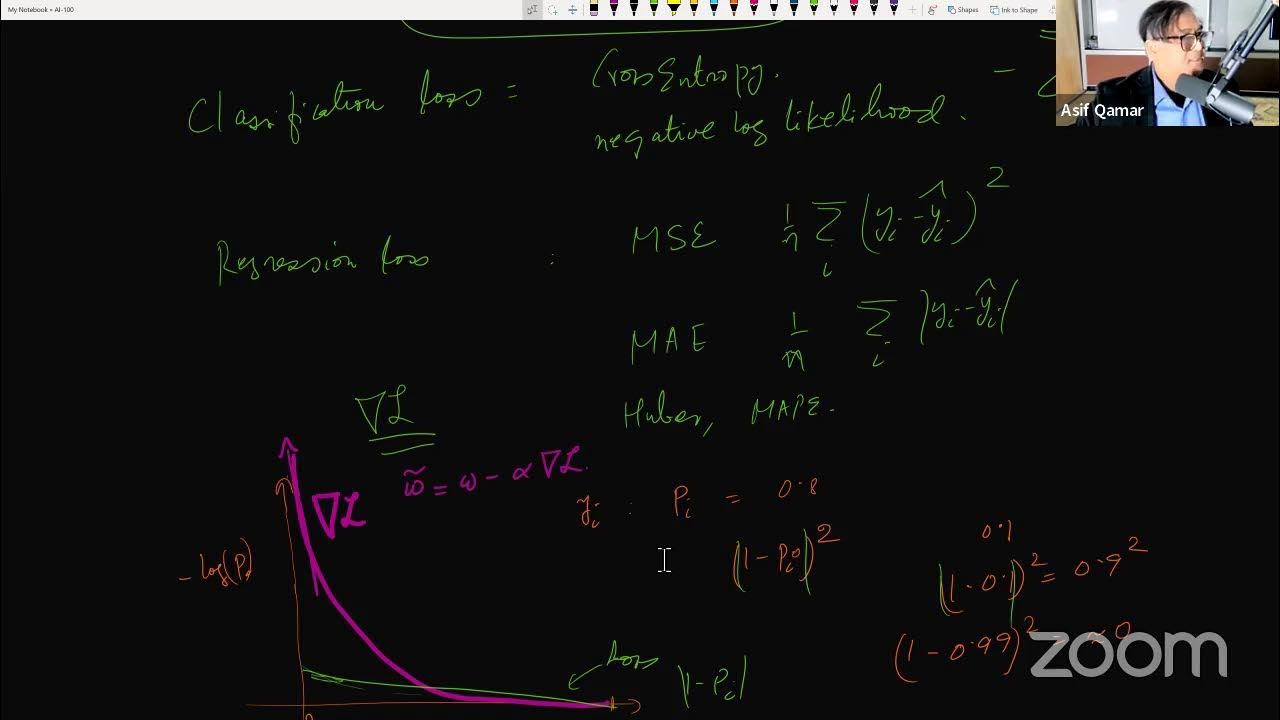 My Notebook » AI-100
Shapes
Ink to Shape
Asif Qamar
Classification loss = CrossEntropy.
negative log likelihood.
Regression loss : MSE 1/n Σ_i (y_i - ŷ_i)^2
MAE 1/n Σ_i |y_i - ŷ_i|
Huber, MAPE.
∇L
w̃ = w - α ∇L.
∇L
y_i : P_i = 0.8
(1 - P_i)^2
-log(P_i)
0.1
(1 - 0.1)^2 = 0.9^2
(1 - 0.99)^2 ≈ 0
Loss
|1 - P_i|
zoom